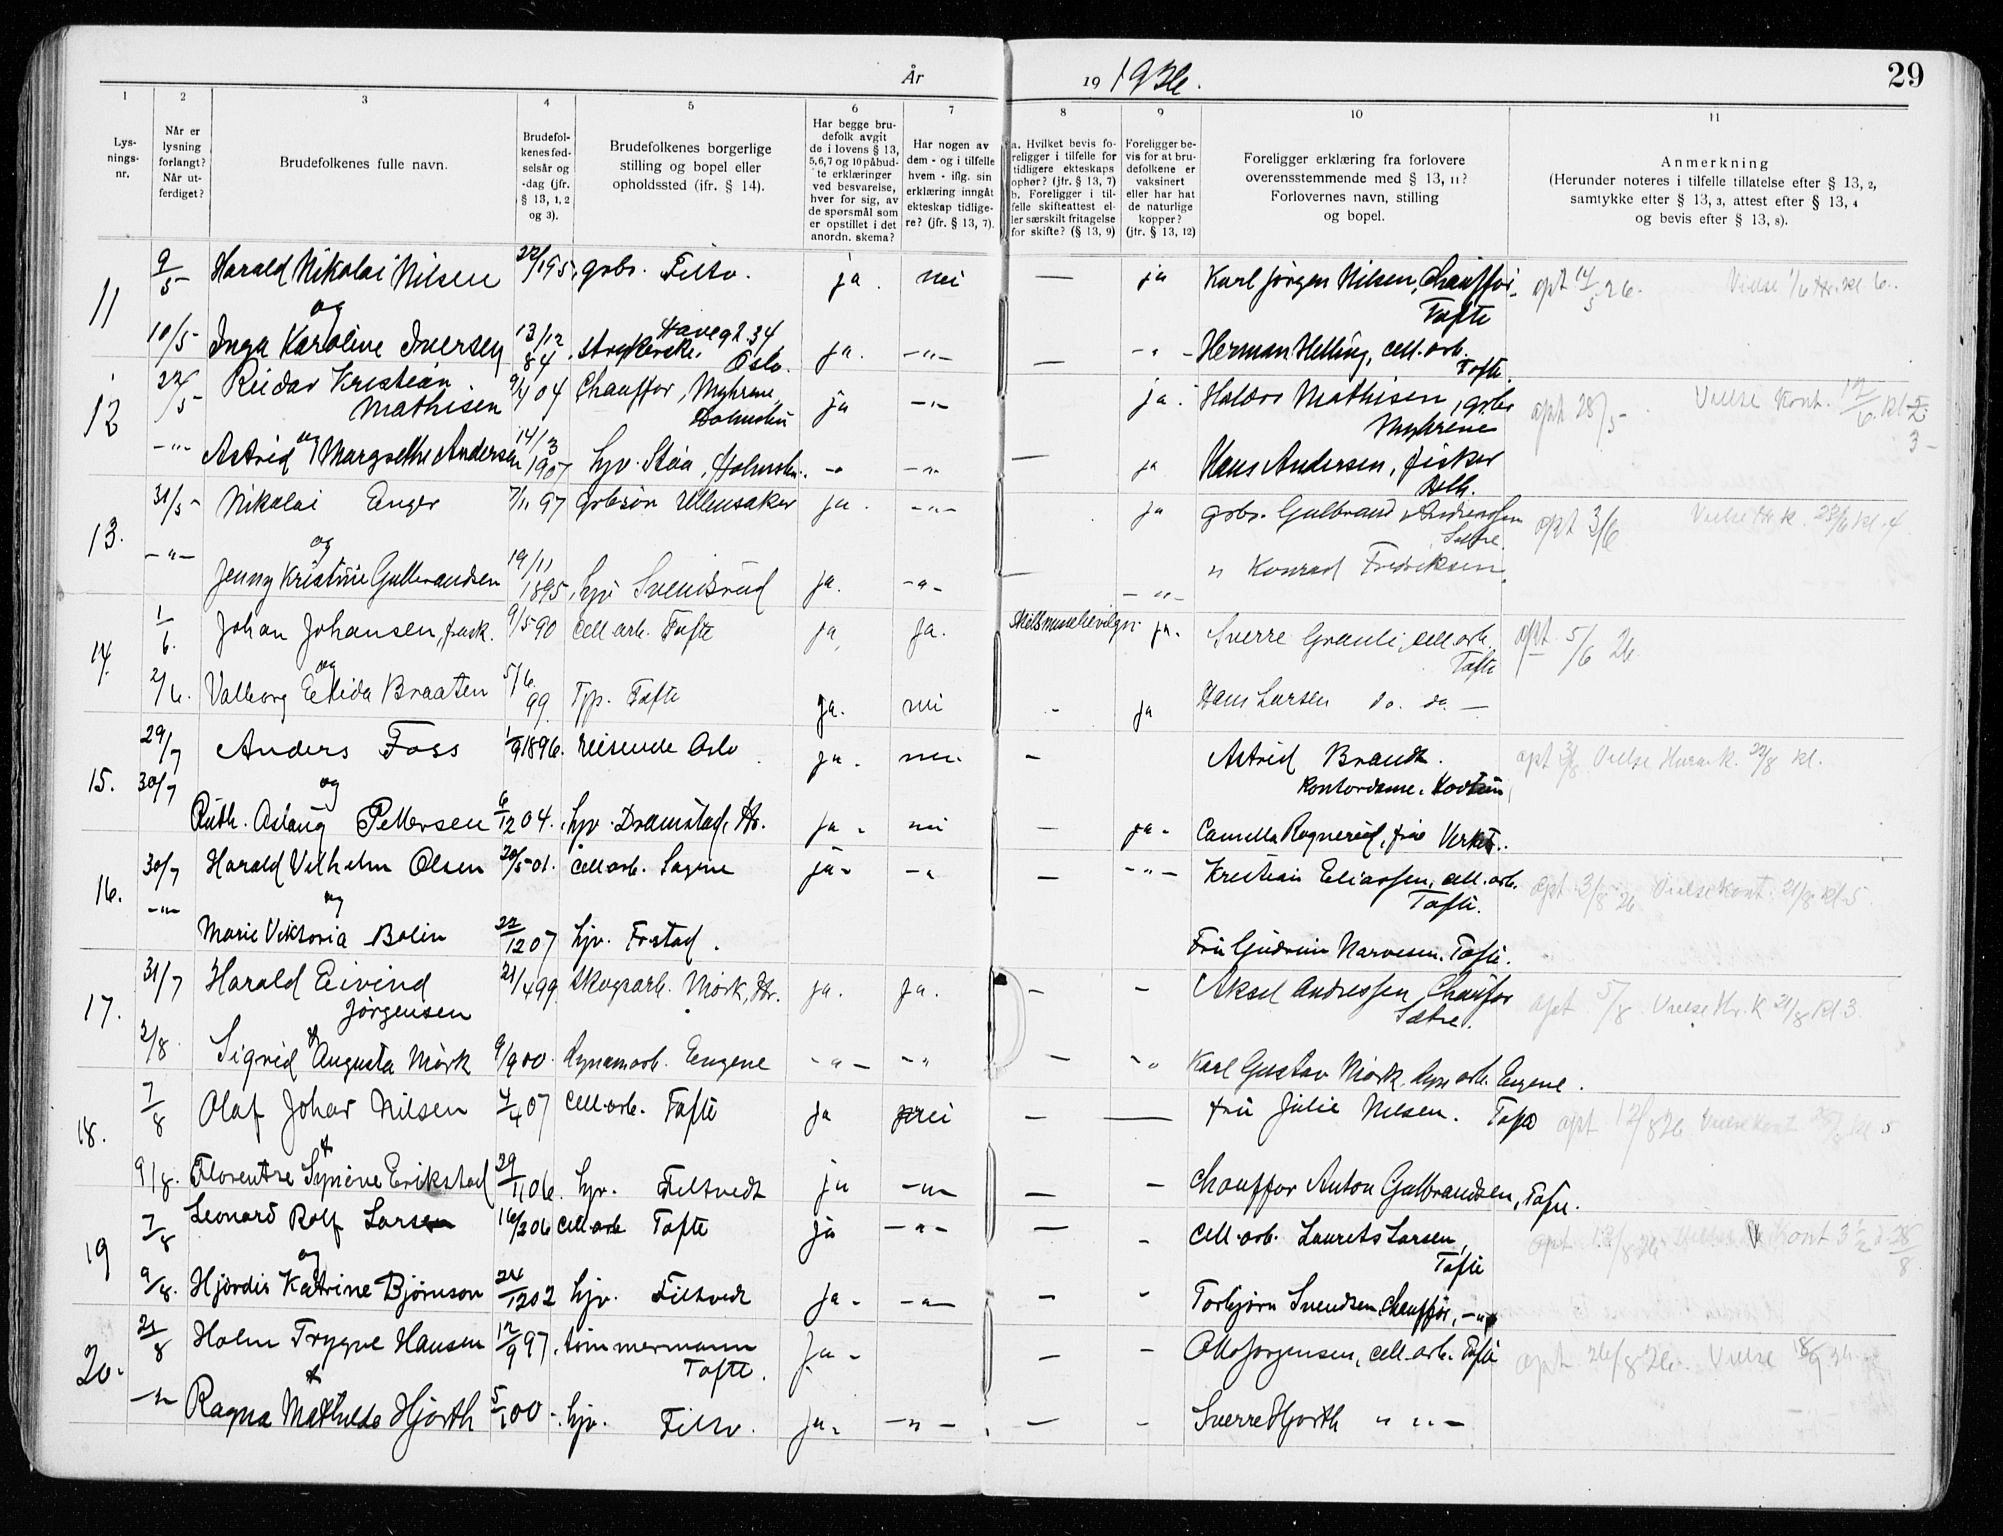 År
19 1926.
29
1
2
3
4
5
6
7
8
9
10
11
Lys-
nings-
nr.
Når er
lysning
forlangt?
Når ut-
ferdiget?
Brudefolkenes fulle navn.
Brudefol-
kenes fød-
selsår og
-dag (jfr.
§ 13, 1, 2
og 3).
Brudefolkenes borgerlige
stilling og bopel eller
opholdssted (jfr. § 14).
Har begge bru-
defolk avgit
de i lovens § 13,
5,6,7 og 10 påbud-
te erklæringer
ved besvarelse,
hver for sig, av
de spørsmål som
er opstillet i det
anordn. skema?
Har nogen av
dem - og i tilfelle
hvem - iflg. sin
erklæring inngåt
ekteskap tidlige-
re? (jfr. § 13, 7).
a. Hvilket bevis fo-
religger i tilfelle for
tidligere ekteskaps
ophør? (jfr. § 13, 7)
b. Foreligger i til-
felle skifteattest el-
ler særskilt fritagelse
for skifte? (§ 13, 9)
Foreligger be-
vis for at bru-
defolkene er
vaksinert
eller har hat
de naturlige
kopper?
(jfr. § 13, 12)
Foreligger erklæring fra forlovere
overensstemmende med § 13, 11?
Forlovernes navn, stilling
og bopel.
Anmerkning
(Herunder noteres i tilfelle tillatelse efter § 13, 2,
samtykke efter § 13, 3, attest efter § 13, 4
og bevis efter § 13, 8).
11 9/5 Harald Nikolai Nilsen 22/1 95 grbr. Filtv. ja. nei — ja Karl Jörgen Nilsen, Chauffør, Tofte opt 14/5 26. Vielse 1/6 Hr. kl. 6.
og
10/5 Inga Karoline Iversen 13/12 84 strykerske, Havegt. 34 Oslo. ja. -"- — -"- Herman Helling, cell. arb. Tofte.
12 22/5 Reidar Kristian Mathisen 9/4 04 Chauffør, Myhrene, Holmsbu ja -"- ja. Haldor Mathisen, grbr Myhrene opt 28/5 Vielse Kont. 12/6 kl
og
-"- Astrid Margrethe Andersen 14/3 1907 hjv. Støa, Holmsbu. -" -"- — ja Hans Andersen, fisker
13. 31/5 Nikolai Enger 7/11 97 grbrsøn Ullensaker ja. -"- ja grbr. Gulbrand Andressen Sætre. opt 3/6 Vielse Hr. k. 23/6 kl. 4
og
-"- Jenny Kristine Gulbrandsen 19/11 1895, hjv Svendsrud ja. -"- — -"- " Konrad Fredriksen.
14. 1/6. Johan Johansen, frask. 9/5 90 cell arb. Tofte ja, ja. ja. Sverre Grauli, cell. arb. Tofte opt 5/6 26
og
2/6. Valborg Elida Braaten 5/6. 99. Typ. Tofte ja. nei - ja Hans Larsen do. do. —
15. 29/7 Anders Foss 1/9 1896. reisende Oslo ja. nei. — Astrid Brandt. Kontordame. opt 3/8. Vielse Hurum k. 22/8 kl.
og
30/7 Ruth. Aslaug Pettersen 6/12 04. hjv. Dramstad, Hr. ja. nei — ja. Camilla Rognerud, frue Verket.
16. 30/7 Harald Vilhelm Olsen 20/5 01. cell arb. Sagene ja- -" — -"- Kristian Eliassen, cell. arb. Tofte. opt. 3/8 26 Vielse Kont. 21/8 kl. 5
og
-"- Marie Viktoria Bolin 22/12 07 hjv. Frstad. Fru Gudrun Narvesen. Tofte.
17. 31/7 Harald Eivind Jørgensen 21/4 99 skogsarb. Mörk, Hr. ja. ja. — - Aksel Andressen, Chauffør Sætre. opt 5/8. Vielse Hr. K 21/8 kl 3.
&
2/8. Sigrid Augusta Mörk 9/9 00. dynam arb. Engene -"- -" — -" Karl Gustav Mörk, dyn arb. Engene.
18. 7/8 Olaf Johar Nilsen 7/4 07 cell. arb. Tofte ja nei — — fru Julie Nilsen. Tofte opt 12/8 26 Vielse Kont 28/8 kl 5
&
9/8. Florentse Synöve Erikstad 29/11 06. hjv. Filtvedt ja -"- — - Chauffør Anton Gulbrandsen, Tofte.
19 7/8 Leonard Rolf Larsen 16/2 06 cell arb Tofte ja -"- — - cell. arb. Laurits Larsen, Tofte opt 12/8 26. Kont 3 1/2 28/8
og
9/8. Hjördis Katrine Björnson 24/12 02 hjv. Filtvedt ja - -"- — - Torbjørn Svendsen, Chauffør, -"-
20. 21/8 Holm Trygve Hansen 12/9 97, tømmermann Tofte. ja - — - Otto Jørgensen, cell. arb. Tofte opt 26/8 26. Vielse 18/9 26
&
-"- Ragna Mathilde Hjorth 5/1 00 -. hjv. Filtv. ja. -"- — - Sverre Hjorth " " —